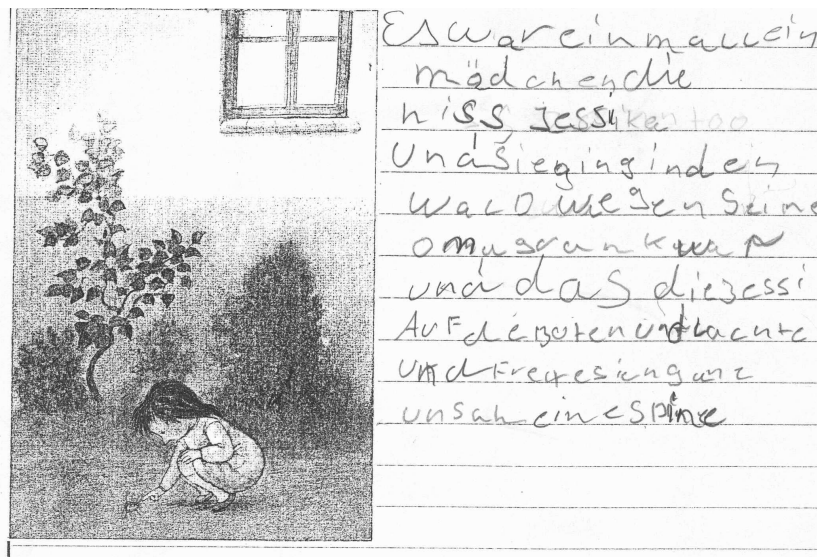 Es war ein mall ein
mädchen die
hiss Jessika
Und sie ging in den
Wald wegen Seine
oma grank war
und das die Jessi
Auf de Boten und lachte
und Freute sich ganz
un sah eine Spinne